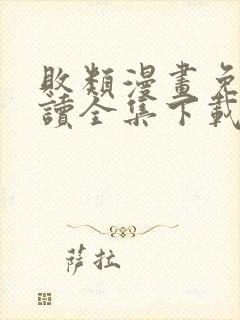 敗類漫畫免
讀全集下載
萨拉